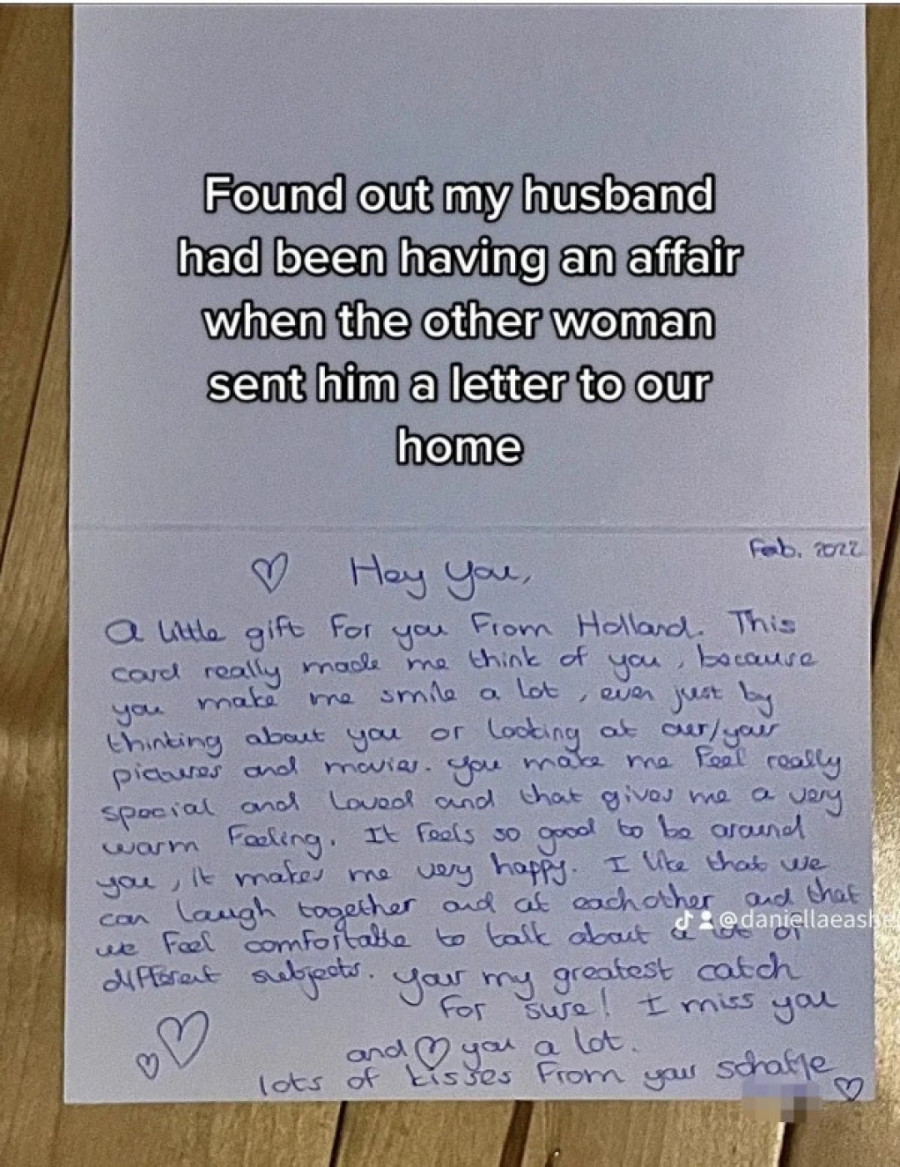 Found out my husband
had been having an affair
when the other woman
sent him a letter to our
home
Feb. 2022
Hey you,
A little gift for you from Holland. This
card really made me think of you, because
you make me smile a lot, even just by
thinking about you or looking at our/your
pictures and movies. you make me feel really
special and loved and that gives me a very
warm feeling. It feels so good to be around
you, it makes me very happy. I like that we
can laugh together and at eachother and that
@daniellaeashe
we feel comfortable to talk about a lot of
different subjects. your my greatest catch
for sure! I miss you
and ♡ you a lot.
lots of kisses from your schatje